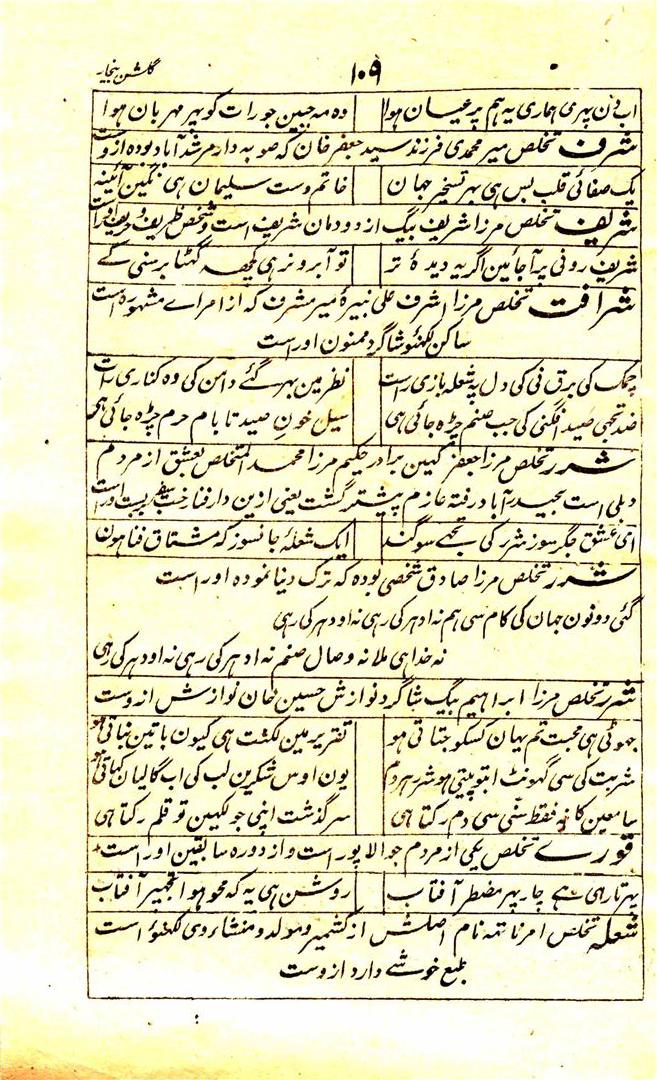 گلشن بیخار ۱۰۹
اب دن پہری ہماری یہ ہم پر عیان ہوا وہ مہ جبین جو رات کو پہر مہربان ہوا
شرف تخلص میر محمدی فرزند سید جعفر خان کہ صوبہ دار مرشد آباد بودہ ازوست
یک صفائی قلب بس ہی بہر تسخیر جہان خاتم دست سلیمان ہی نگین آئینہ
شریف تخلص مرزا شریف بیگ از دودمان شریف است و شخص ظریف و حریف اوراست
شریف رونی پر آجائین اگر یہ دیدۂ تر تو آبرو نرہی کچھہ گھٹا برسنی کے
شرافت تخلص مرزا اشرف علی نبیرۂ میر مشرف کہ از امراے مشہورہ است
ساکن لکھنؤ شاگرد ممنون اوراست
چمک کی برق نی کی دل پہ شعلہ بازی رات نظر مین پہر گئے دامن کی وہ کناری رات
ضد تجہی صید افگنی کی جب صنم چڑہ جائی ہی سیل خون صید تا بام حرم چڑہ جائی ہی
شرر تخلص مرزا جعفر کہین برادر حکیم مرزا محمد المتخلص بعشق از مردم
دہلی است بحیدرآباد رفتہ عازم پیشتر گشت یعنی ازین دار فنا رخت سفر بست اوراست
ای عشق جگر سوز شرر کی تجہے سوگند ایک شعلۂ جانسوز کہ مشتاق فنا ہون
شرر تخلص مرزا صادق شخصی بودہ کہ ترک دنیا نمودہ اوراست
گئی دونون جہان کی کام سی ہم نہ ادہر کی رہی نہ اودہر کی رہی
نہ خدا ہی ملا نہ وصال صنم نہ ادہر کی رہی نہ اودہر کی رہی
شرر تخلص مرزا ابراہیم بیگ شاگرد نوازش حسین خان نوازش ازوست
جہوٹی ہی محبت تم یہان کسکو جتاتی ہو تقریر مین لکنت ہی کیون باتین بناتی ہو
شربت کی سی گہونٹ ابتو پیتی ہو شرر ہردم یون اوس شکرین لب کی اب گالیان کہاتی ہو
سامعین کا نہ فقط سنی سی دم رکتا ہی سرگذشت اپنی جو لکہین تو قلم رکتا ہی
تخلص یکی از مردم جوالاپور است و از دورہ سابقین اوراست
پہرتا رہی ہے چار پہر مضطر آفتاب روشن ہی یہ کہ محو ہوا تجہپر آفتاب
شعلہ تخلص امرناتہہ نام اصلش از کشمیر و مولد و منشاء وی لکھنؤ است
طبع خوشے دارد ازوست